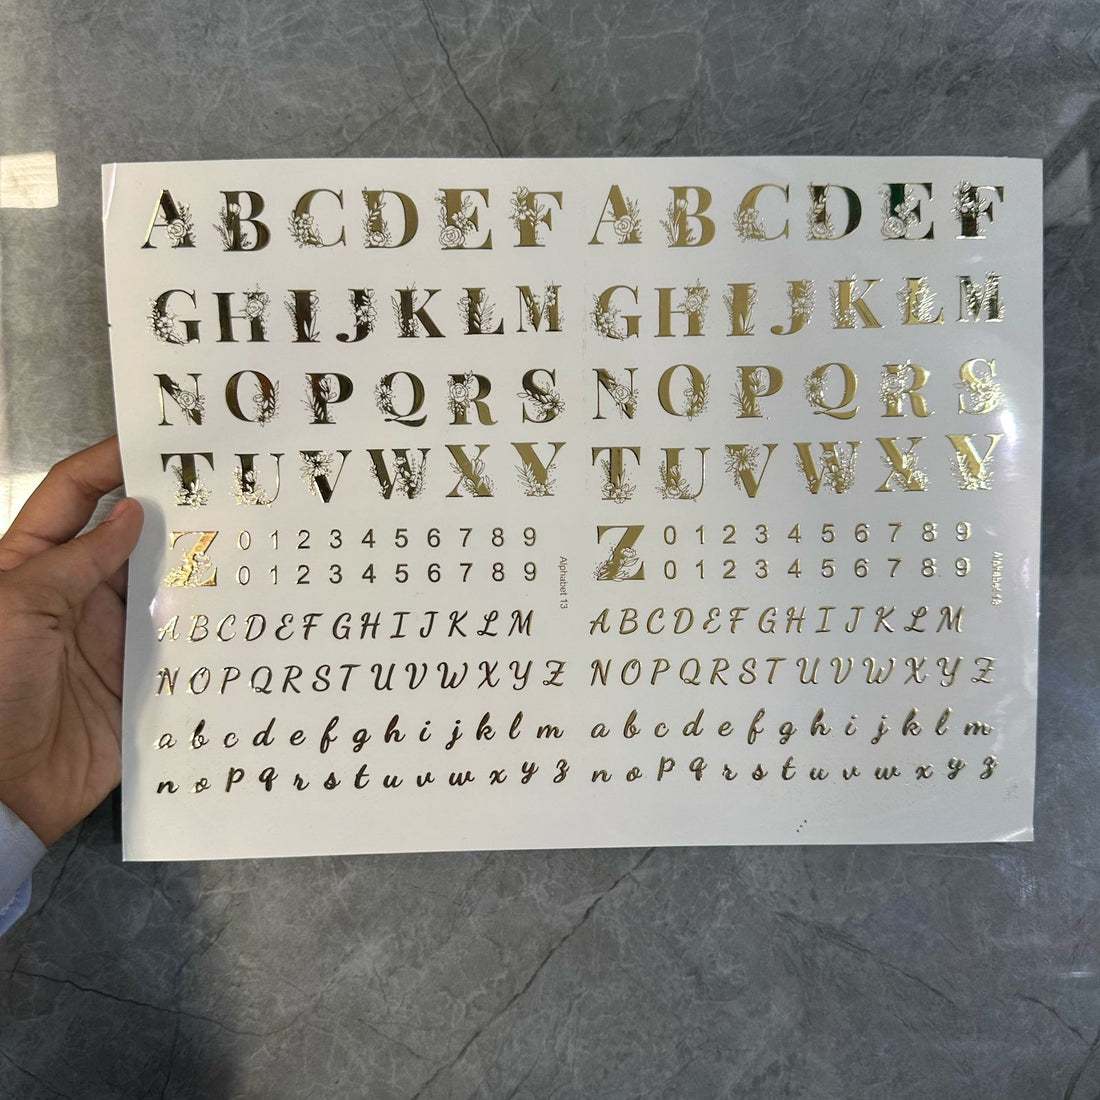 A B C D E F A B C D E F
G H I J K L M G H I J K L M
N O P Q R S N O P Q R S
T U V W X Y T U V W X Y
Z 0 1 2 3 4 5 6 7 8 9 Z 0 1 2 3 4 5 6 7 8 9
0 1 2 3 4 5 6 7 8 9 0 1 2 3 4 5 6 7 8 9
Alphabet 13 Alphabet 13
A B C D E F G H I J K L M A B C D E F G H I J K L M
N O P Q R S T U V W X Y Z N O P Q R S T U V W X Y Z
a b c d e f g h i j k l m a b c d e f g h i j k l m
n o p q r s t u v w x y z n o p q r s t u v w x y z